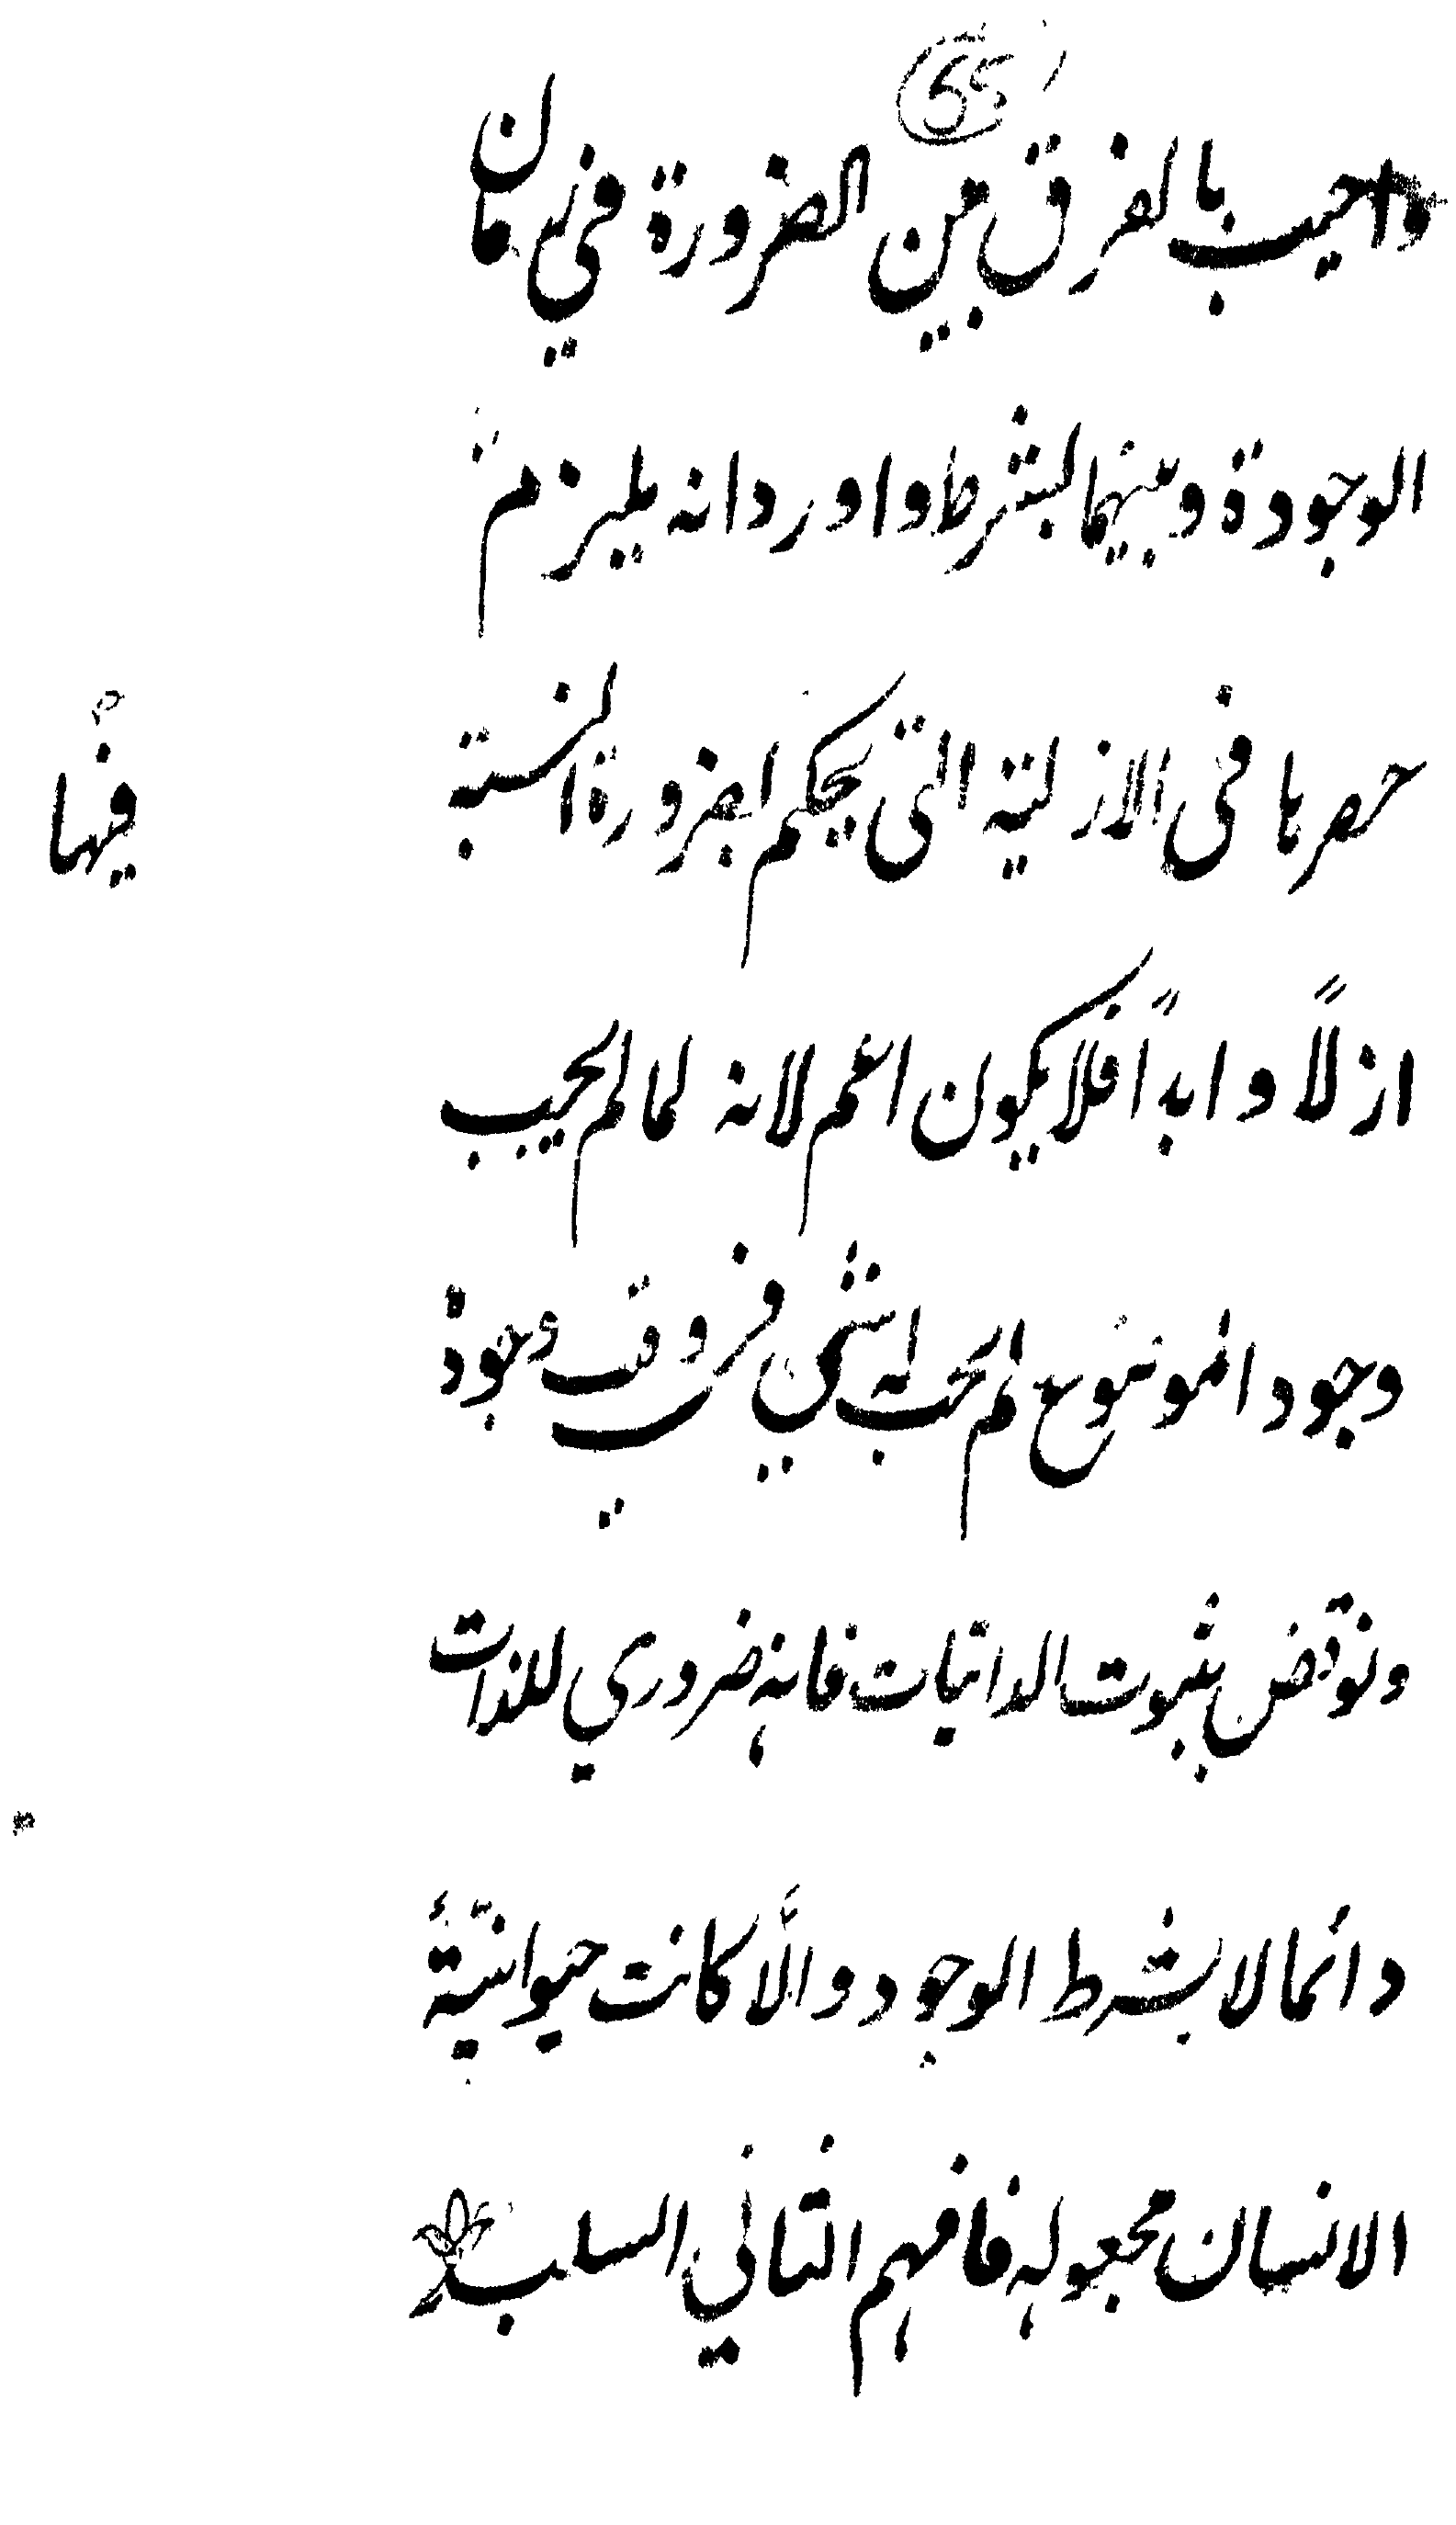 55
واجيب بالفرق بين الضرورة في زمان
الوجودة وبينهما بشرط واورد انه يلزم
حصرها فى الازلية التى يحكم بضرورة النسبة
فيها
ازلاً وابداً فلا يكون اعم لانه لما لم يجب
وجود الموضوع لم يجب له شي في وقت وجوده
ونوقض بثبوت الذاتيات فانه ضروري للذات
دائما لا بشرط الوجود والّا كانت حيوانيّة
الانسان مجعولة فافهم الثاني السلب